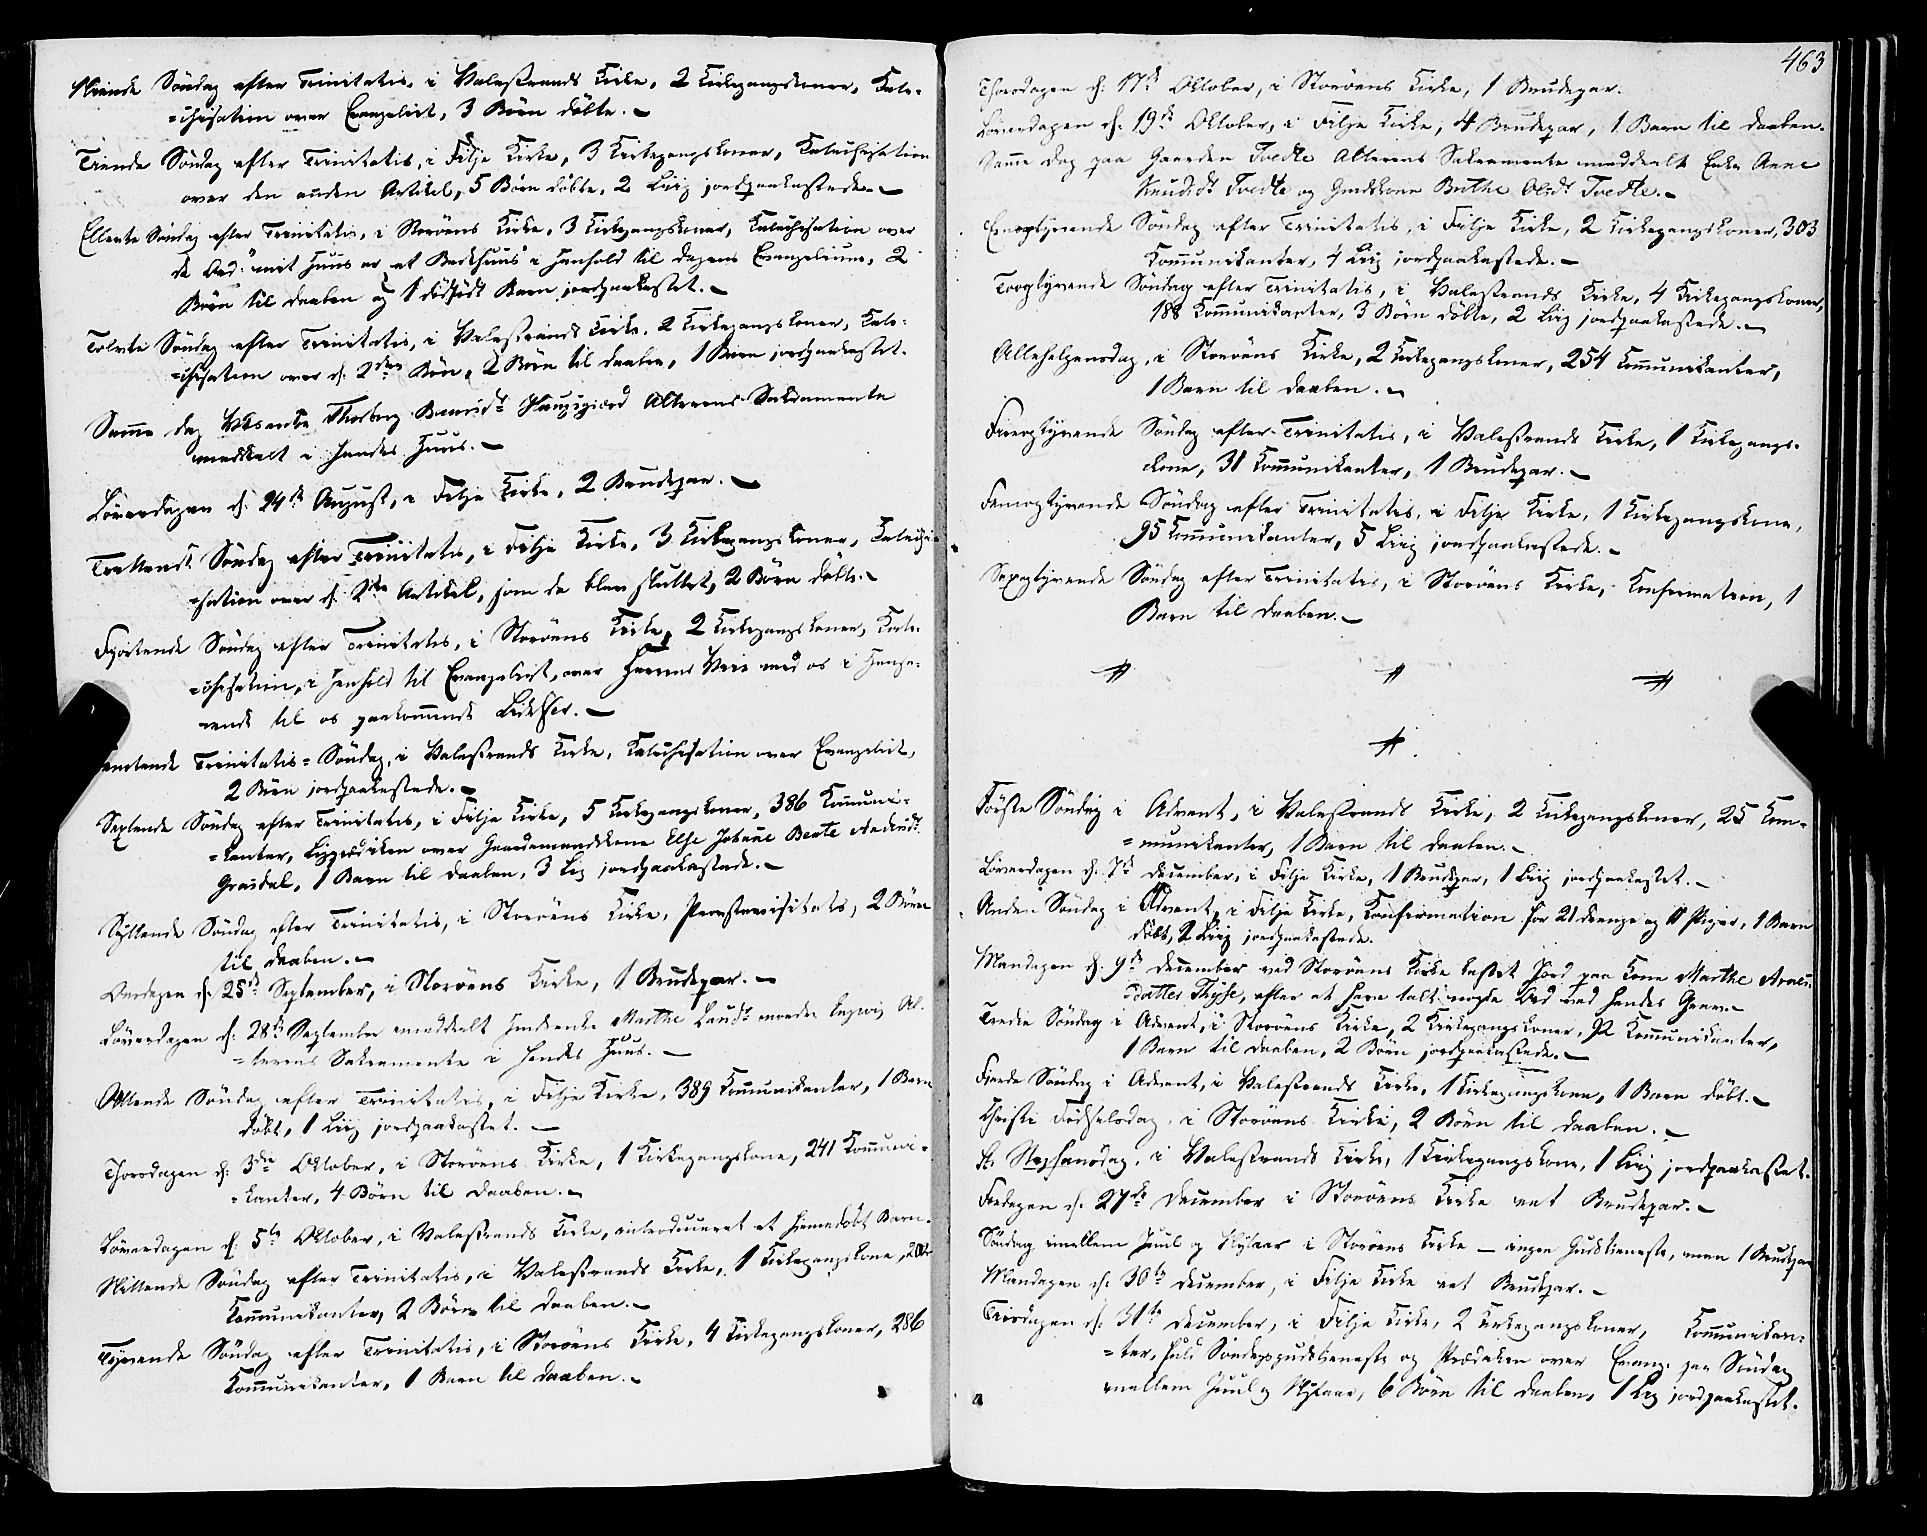 Niende Søndag efter Trinitatis, i Valestrands Kirke, 2 Kirkegangskoner, Kate-
=chisation over Evangeliet, 3 Børn døbte.
Tiende Søndag efter Trinitatis, i Fitje Kirke, 3 Kirkegangskoner, Katechisation
over den anden Artikel, 5 Børn døbte, 2 Liig jordpaakastede.
Ellevte Søndag efter Trinitatis, i Storöens Kirke, 3 Kirkegangskoner, Katechisation over
de Ord: "mit Huus er et Bedehuus" i Henhold til Dagens Evangelium, 2
Børn til Daaben og 1 dødfødt Barn jordpaakastet.
Tolvte Søndag efter Trinitatis, i Valestrands Kirke, 2 Kirkegangskoner, Kate-
=chisation over d: 2den Bøn, 2 Børn til Daaben, 1 Barn jordpaakastet.
Samme Dag Thorborg Alterens Sakramente
meddeelt i Hendes Huus.
Løverdagen d: 24de August, i Fitje Kirke, 2 Brudepar.
Trettende Søndag efter Trinitatis, i Fitje Kirke, 3 Kirkegangskoner, Katechi-
=sation over d: 2den Artikel, som da blev sluttet, 2 Børn døbte.
Fjortende Søndag efter Trinitatis, i Storöens Kirke, 2 Kirkegangskoner, Kate-
=chisation, i Henhold til Evangeliet, over Herrens Veie med os i Hense-
=ende til os paakommende Lidelser.
Femtende Trinitatis-Søndag, i Valestrands Kirke, Katechisation over Evangeliet,
2 Børn jordpaakastede.
Sextende Søndag efter Trinitatis, i Fitje Kirke, 5 Kirkegangskoner, 386 Kommuni-
=kanter, Liigprædiken over Gaardmandskone Else Johanne Bente Andersdt
Grøsdal, 1 Barn til Daaben, 3 Liig jordpaakastede.
Syttende Søndag efter Trinitatis, i Storöens Kirke, Provstevisitats, 2 Børn
til Daaben.
Onsdagen d: 25de September, i Storöens Kirke, 1 Brudepar.
Løverdagen d: 28de September meddeelt Marthe Al-
=terens Sakramente i Hendes Huus.
Attende Søndag efter Trinitatis, i Fitje Kirke, 389 Kommunikanter, 1 Barn
døbt, 1 Liig jordpaakastet.
Thorsdagen d: 3die Oktober, i Storöens Kirke, 1 Kirkegangskone, 241 Kommuni-
=kanter, 4 Børn til Daaben.
Løverdagen d: 5te Oktober, i Valestrands Kirke, introduceret et hjemmedøbt Barn.
Nittende Søndag efter Trinitatis, i Valestrands Kirke, 1 Kirkegangskone,
Kommunikanter, 2 Børn til Daaben.
Tyvende Søndag efter Trinitatis, i Storöens Kirke, 4 Kirkegangskoner, 286
Kommunikanter, 1 Barn til Daaben.
463
Thorsdagen d: 17de Oktober, i Storöens Kirke, 1 Brudepar.
Løverdagen d: 19de Oktober, i Fitje Kirke, 4 Brudepar, 1 Barn til Daaben.
Samme Dag paa Gaarden Tvedte Alterens Sakramente meddeelt Enke Anne
Knudsdt Tvedte og Huuskone Brithe Olsdt Tvedte.
Eenogtyvende Søndag efter Trinitatis, i Fitje Kirke, 2 Kirkegangskoner, 303
Kommunikanter, 4 Liig jordpaakastede.
Toogtyvende Søndag efter Trinitatis, i Valestrands Kirke, 4 Kirkegangskoner,
188 Kommunikanter, 3 Børn døbte, 2 Liig jordpaakastede.
Allehelgensdag, i Storöens Kirke, 2 Kirkegangskoner, 254 Kommunikanter,
1 Barn til Daaben.
Fireogtyvende Søndag efter Trinitatis, i Valestrands Kirke, 1 Kirkegangs-
kone, 31 Kommunikanter, 1 Brudepar.
Femogtyvende Søndag efter Trinitatis, i Fitje Kirke, 1 Kirkegangskone,
95 Kommunikanter, 5 Liig jordpaakastede.
Sexogtyvende Søndag efter Trinitatis, i Storöens Kirke, Konfirmation, 1
Barn til Daaben.
Første Søndag i Advent, i Valestrands Kirke, 2 Kirkegangskoner, 25 Kom-
=munikanter, 1 Barn til Daaben.
Løverdagen d: 7de December, i Fitje Kirke, 1 Brudepar, 1 Liig jordpaakastet.
Anden Søndag i Advent, i Fitje Kirke, Konfirmation for 21 Drenge og 11 Piger, 1 Barn
døbt, 2 Liig jordpaakastede.
Mandagen d: 9de December ved Storöens Kirke kastet Jord paa Kone Marthe
Datter, efter at have talt nogle Ord ved Hendes Grav.
Tredie Søndag i Advent, i Storöens Kirke, 2 Kirkegangskoner, 92 Kommunikanter,
1 Barn til Daaben, 2 Børn jordpaakastede.
Fjerde Søndag i Advent, i Valestrands Kirke, 1 Kirkegangskone, 1 Barn døbt.
Christi Fødselsdag, i Storöens Kirke, 2 Børn til Daaben.
St. Stephansdag, i Valestrands Kirke, 1 Kirkegangskone, 1 Liig jordpaakastet.
Fredagen d: 27de December i Storöens Kirke eet Brudepar.
Søndag imellem Juul og Nytaar i Storöens Kirke — ingen Gudstieneste, men 1 Brudepar
Mandagen d: 30te December, i Fitje Kirke eet Brudepar.
Tirsdagen d: 31te December, i Fitje Kirke, 2 Kirkegangskoner, Kommunikan-
=ter, fuld Søndagsgudstieneste og Prædiken over Evang: paa Søndag
mellem Juul og Nytaar, 6 Børn til Daaben, 1 Liig jordpaakastet.